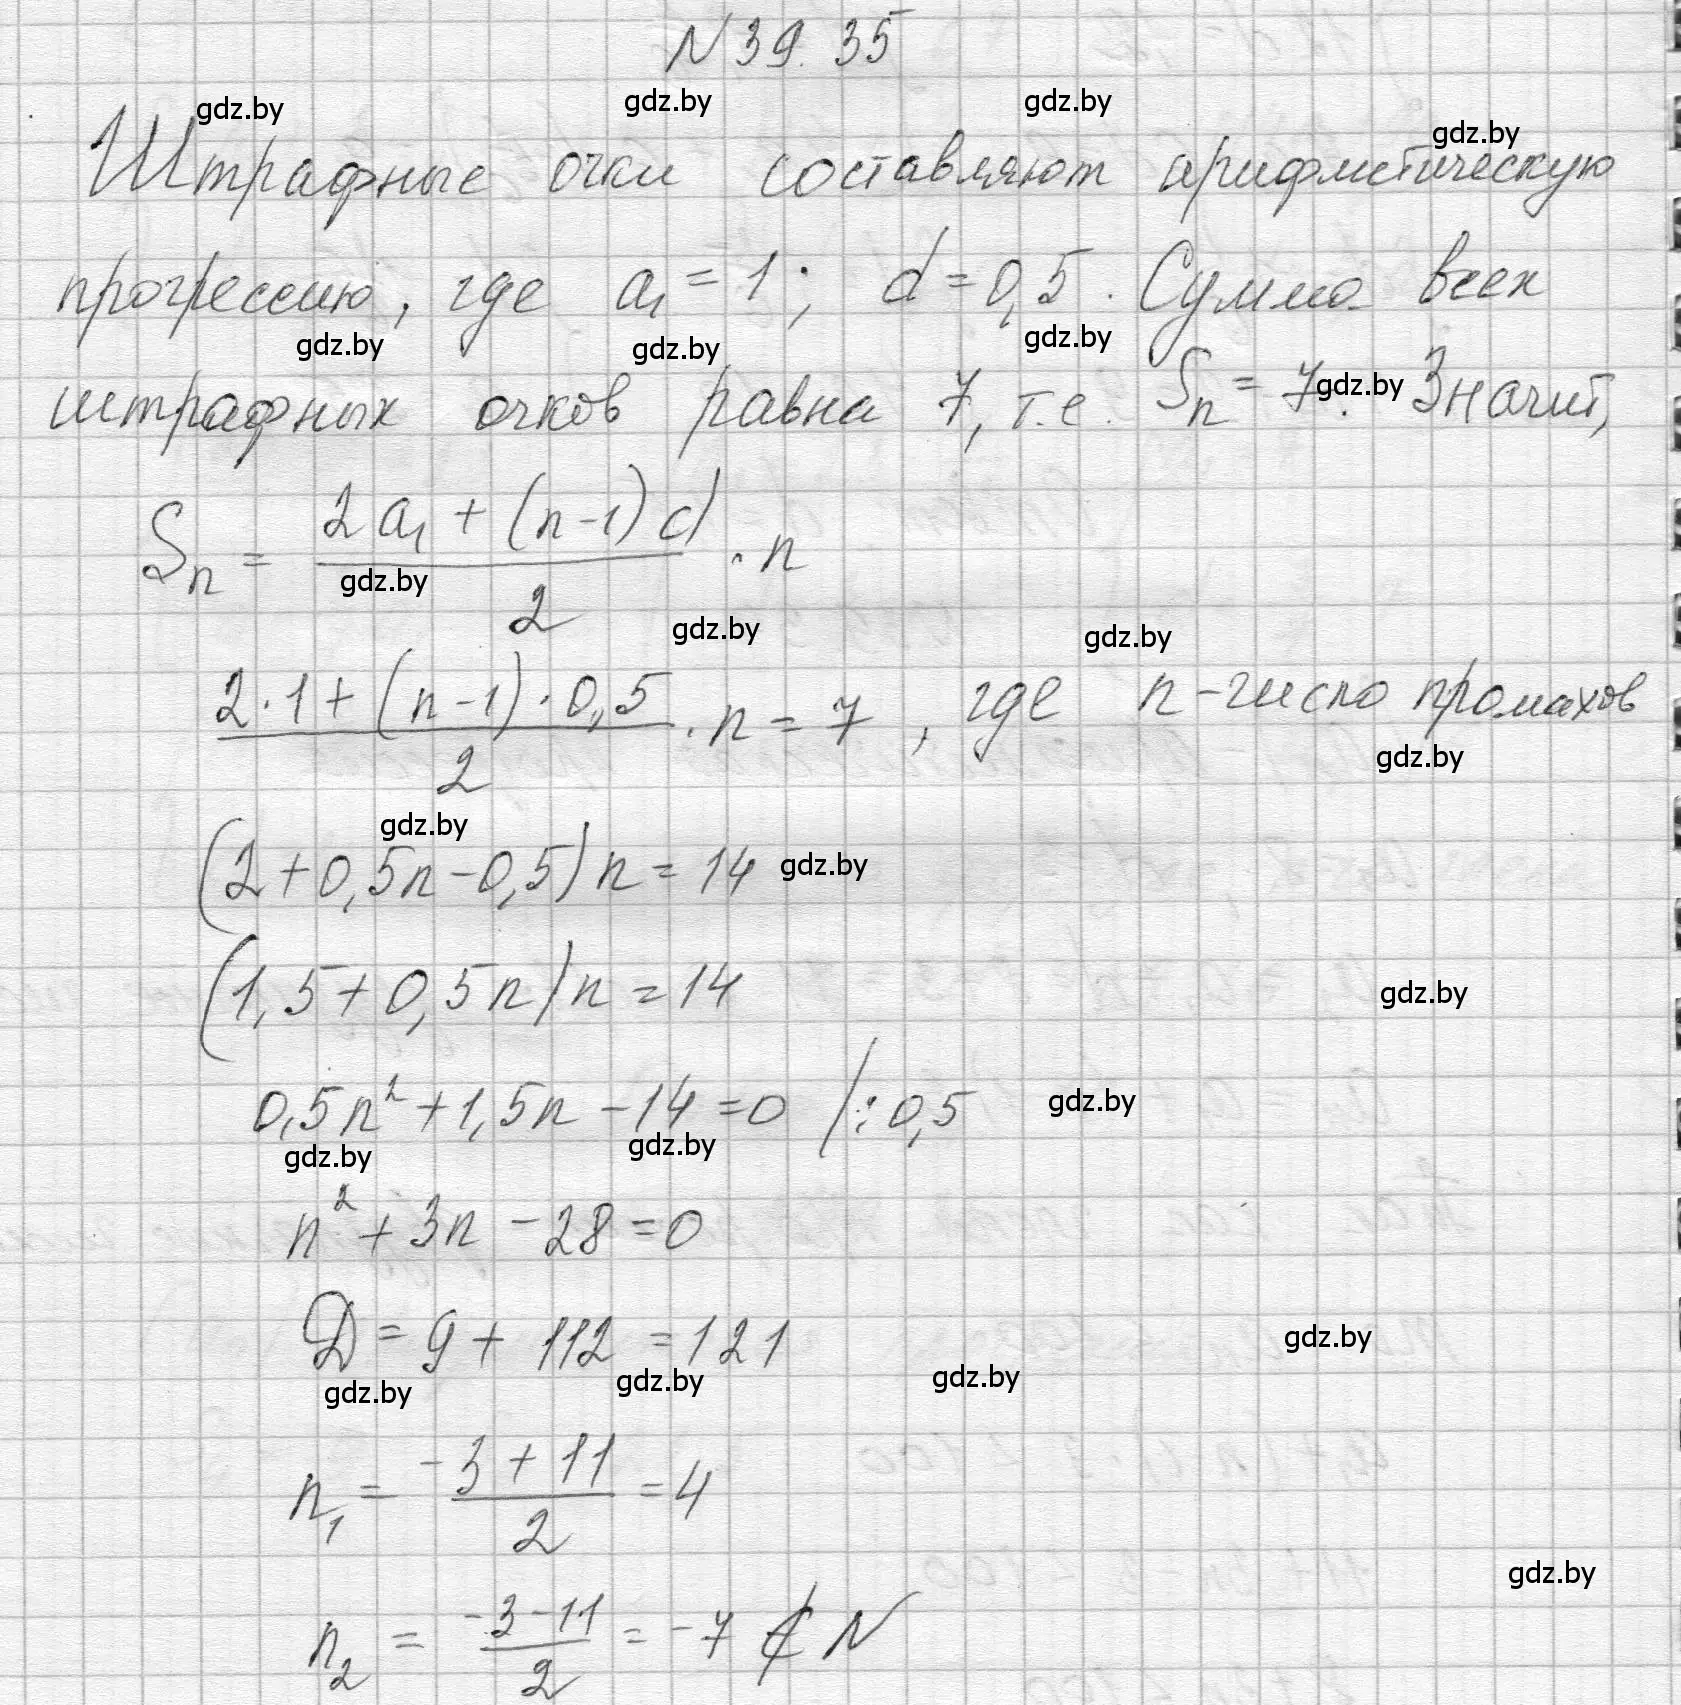 N 39. 35
gdz.by gdz.by gdz.by gdz.by
Штрафные очки составляют арифметическую
прогрессию, где a₁ = 1; d = 0,5. Сумма всех
gdz.by gdz.by gdz.by
штрафных очков равна 7, т.е. Sₙ = 7. Значит,
gdz.by
Sₙ = (2a₁ + (n-1)d)/2 · n
gdz.by gdz.by gdz.by
(2·1 + (n-1)·0,5)/2 · n = 7, где n - число промахов
gdz.by
gdz.by
(2 + 0,5n - 0,5)n = 14
gdz.by
(1,5 + 0,5n)n = 14
gdz.by
0,5n² + 1,5n - 14 = 0 /: 0,5
gdz.by gdz.by gdz.by
n² + 3n - 28 = 0
D = 9 + 112 = 121
gdz.by
gdz.by gdz.by gdz.by
n₁ = (-3 + 11)/2 = 4
gdz.by
n₂ = (-3 - 11)/2 = -7 ∉ N